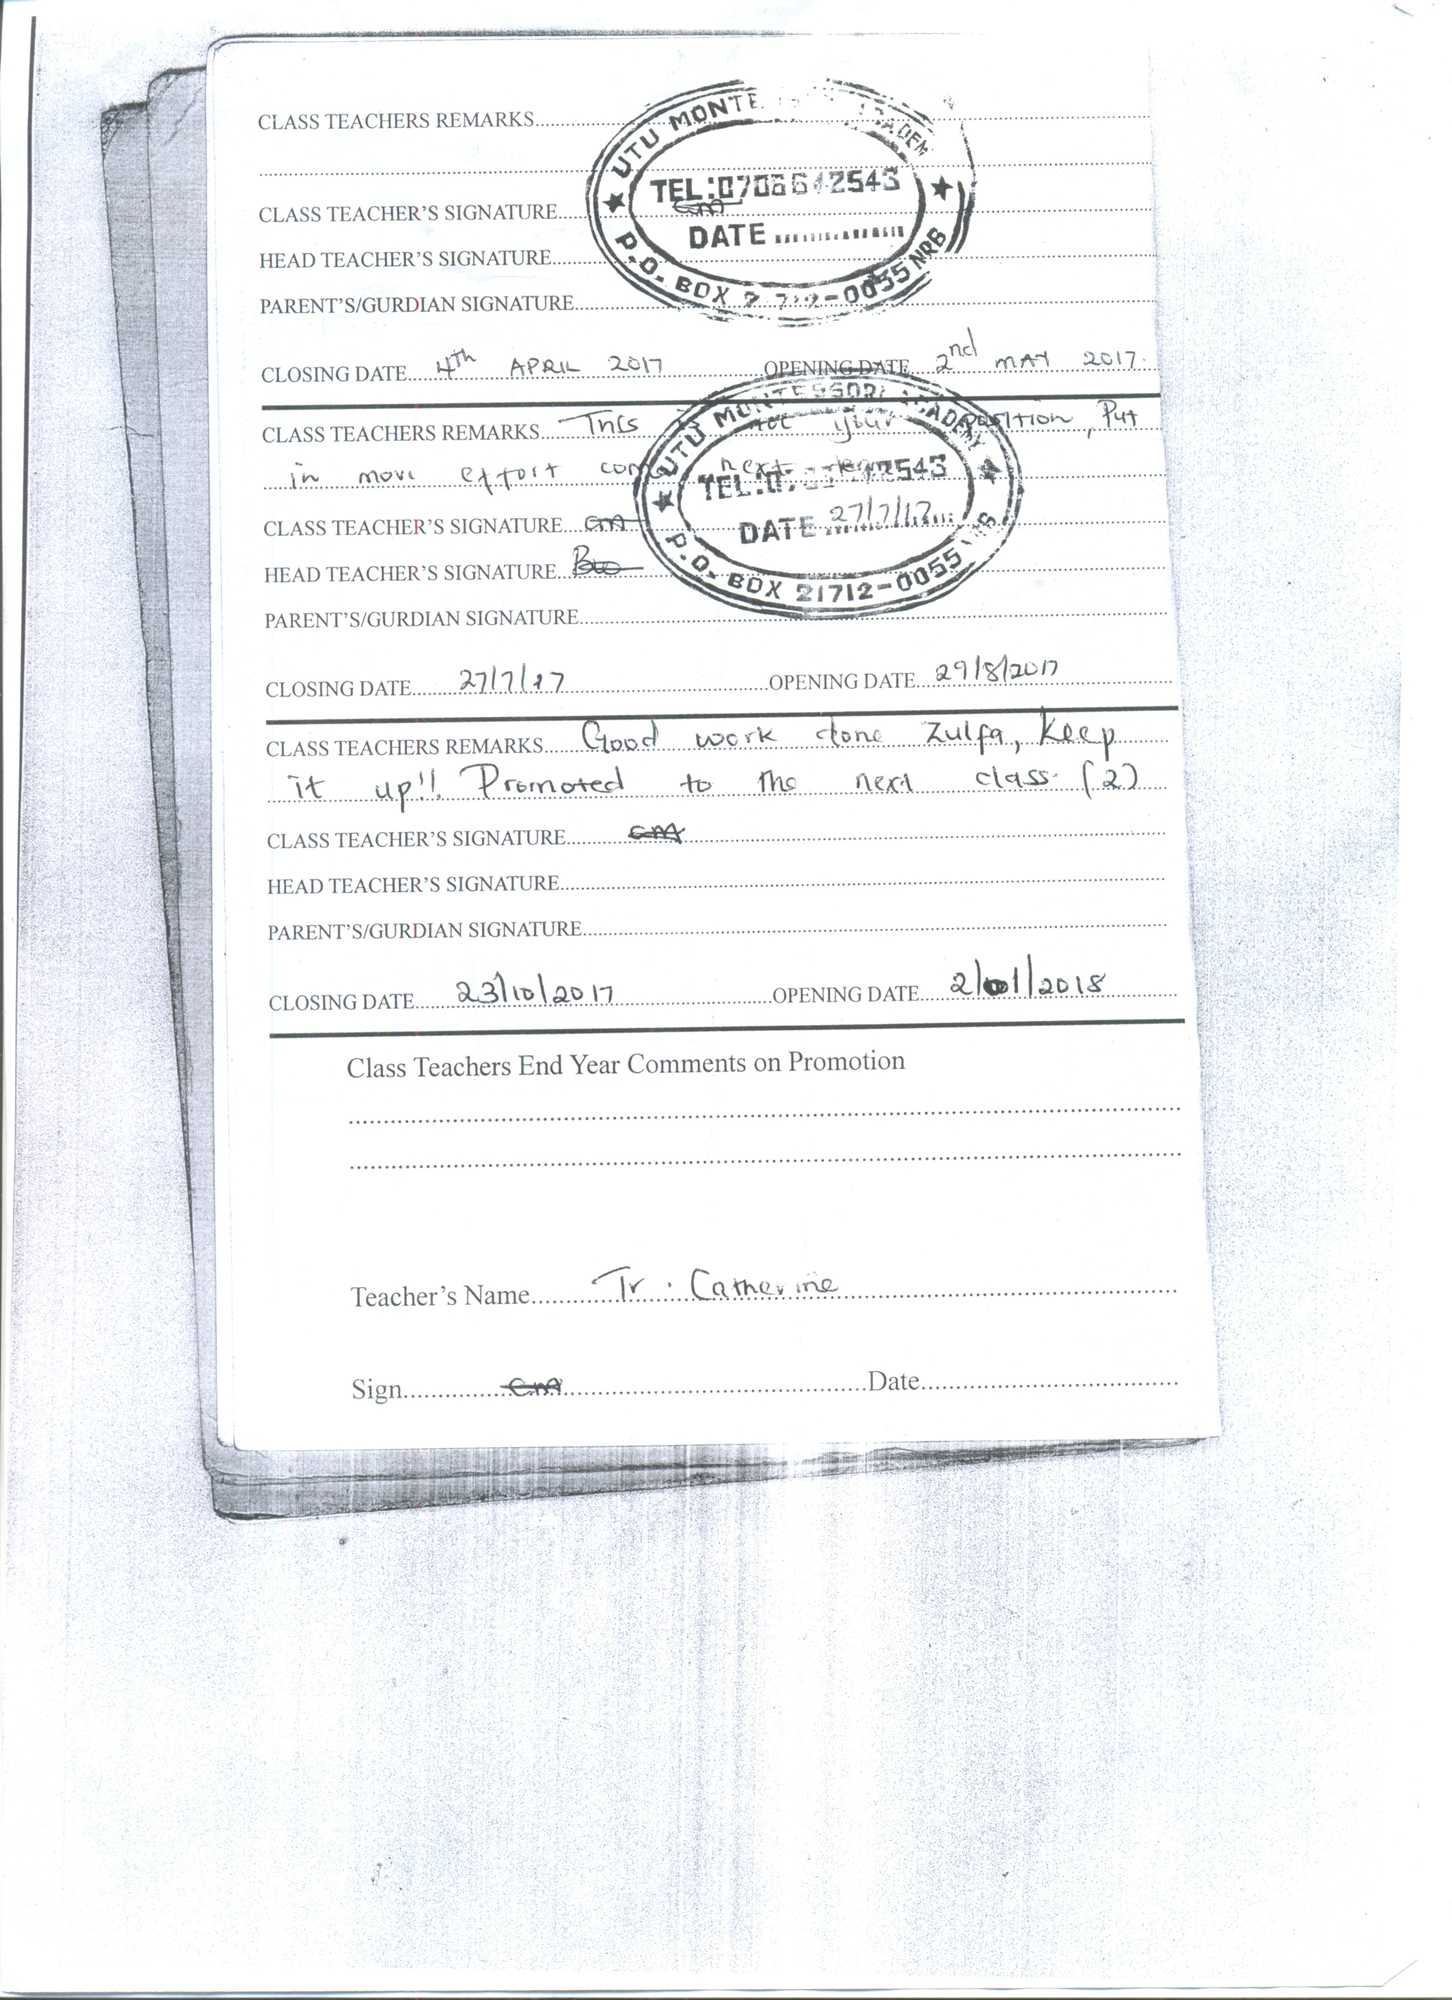 CLASS TEACHERS REMARKS
UTU MONTE
TEL:0706642543
CLASS TEACHER'S SIGNATURE
DATE
HEAD TEACHER'S SIGNATURE
P.O. BOX
NRB
PARENT'S/GURDIAN SIGNATURE
CLOSING DATE 4th APRIL 2017 OPENING DATE 2nd MAY 2017
UTU MONTESSORI ACADEMY
CLASS TEACHERS REMARKS This is not your position, Put
in more effort come next term
CLASS TEACHER'S SIGNATURE
DATE 27/7/17
HEAD TEACHER'S SIGNATURE
P.O. BOX 21712-0055
PARENT'S/GURDIAN SIGNATURE
CLOSING DATE 27/7/17 OPENING DATE 29/8/2017
CLASS TEACHERS REMARKS Good work done Zulfa, Keep
it up!! Promoted to the next class (2)
CLASS TEACHER'S SIGNATURE
HEAD TEACHER'S SIGNATURE
PARENT'S/GURDIAN SIGNATURE
CLOSING DATE 23/10/2017 OPENING DATE 2/01/2018
Class Teachers End Year Comments on Promotion
Teacher's Name Tr. Catherine
Sign Date